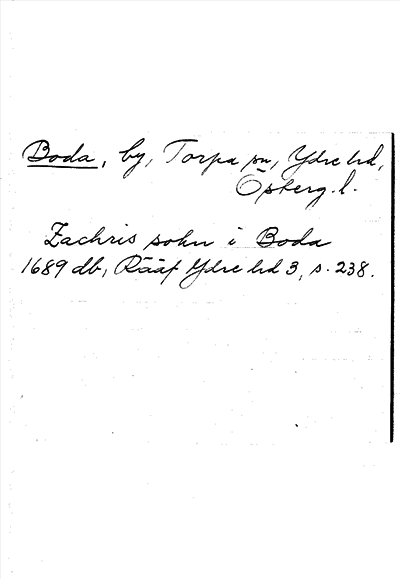 Boda, by, Torpa sn, Ydre hd,
Österg. l.
Zachris sohn i Boda
1689 db, Rääf Ydre hd 3, s. 238.